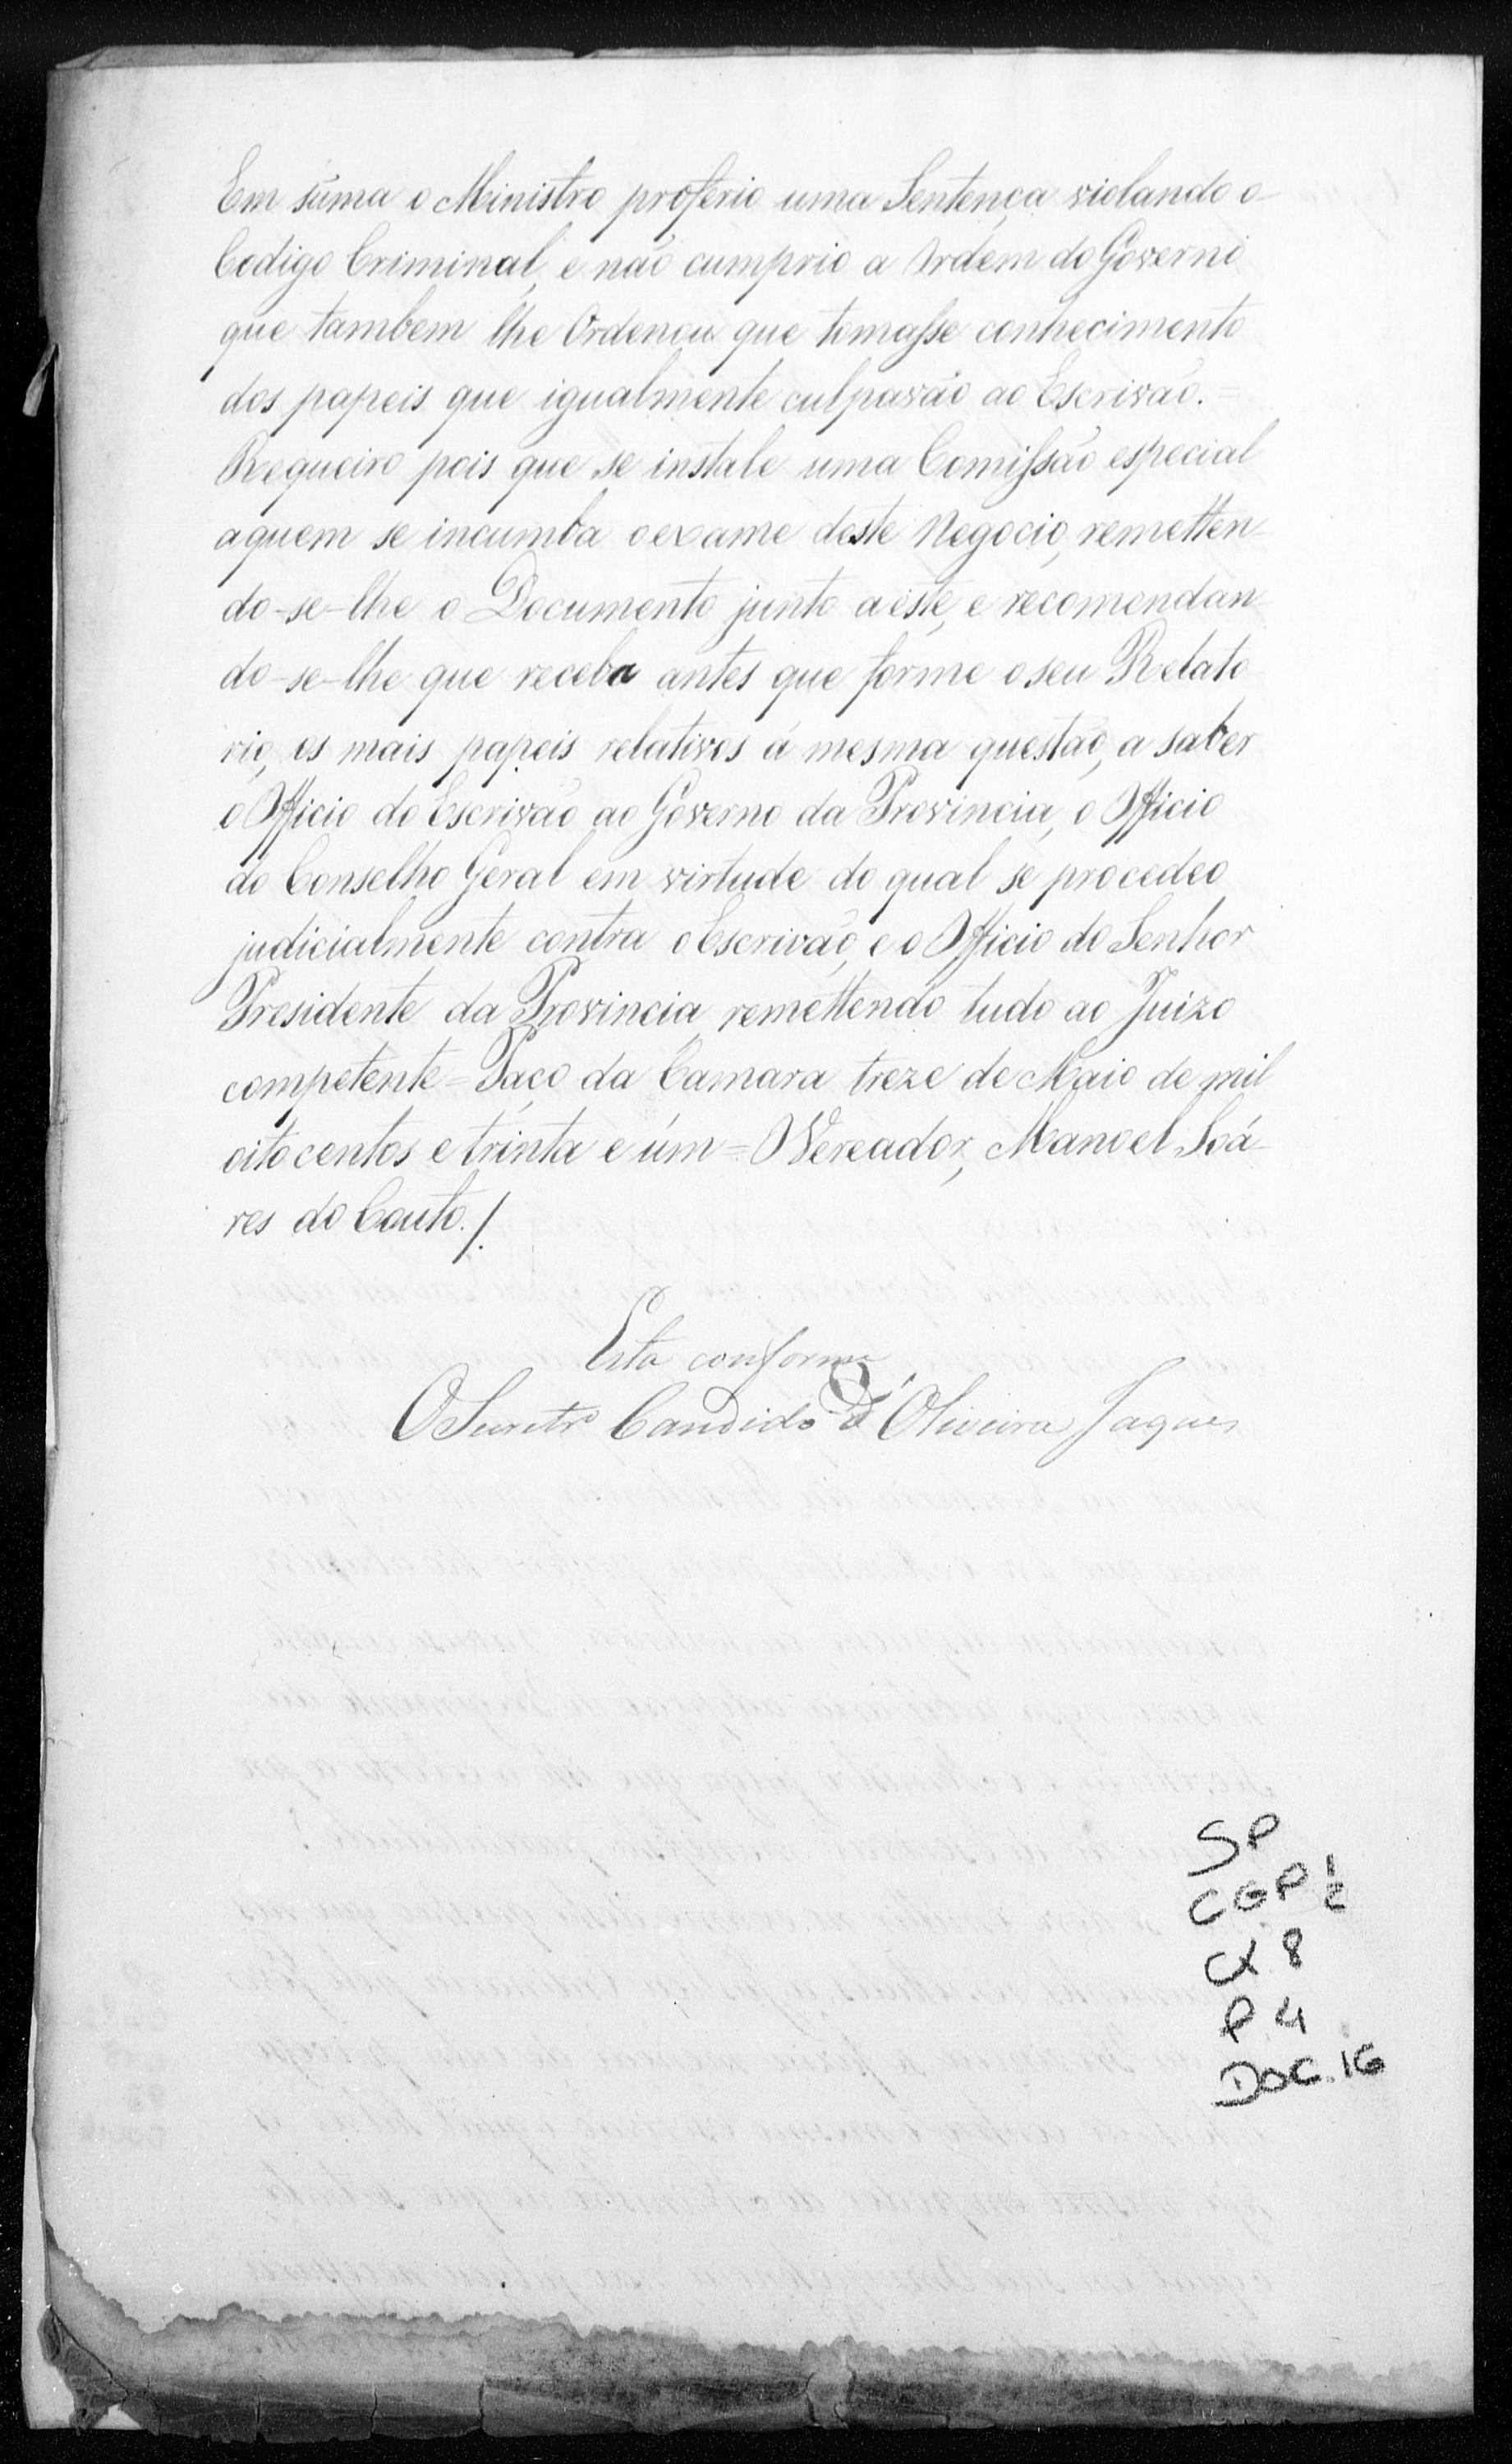 Em súma o Ministro proferio uma Sentença violando o
Codigo Criminal, e não cumprio a Ordem do Governo
que tambem lhe Ordenou que tomasse conhecimento
dos papeis que igualmente culpavão ao Escrivão.=
Requeiro pois que se instale uma Comissão especial
aquem se incumba o exame deste Negocio, remetten-
do-se-lhe o Documento junto a este, e recomendan-
do-se-lhe que receba antes que forme o seu Relato-
rio, os mais papeis relativos á mesma questão, a saber
o Officio do Escrivão ao Governo da Provincia, o Officio
do Conselho Geral em virtude do qual se procedeo
judicialmente contra o Escrivão, e o Officio do Senhor
Presidente da Provincia, remettendo tudo ao Juizo
competente= Paço da Camara treze de Maio de mil
oitocentos e trinta e úm= O Vereador, Manoel Soá-
res do Couto./.
Esta conforme
O Secretrº Candido d'Oliveira Jaques
SP
CGP 1/2
CX 8
P 4
DOC.16